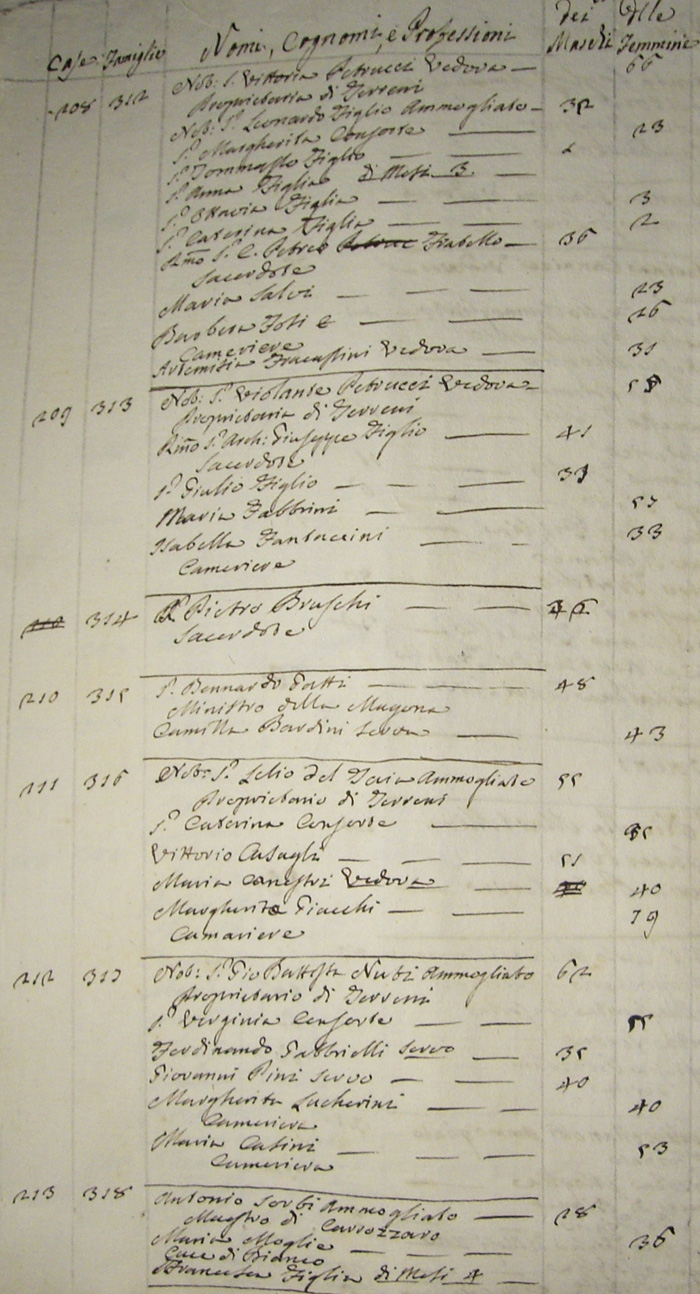 Case Famiglie Nomi, Cognomi, e Professioni dei Maschi delle Femmine
208 312 Nob: S.ª Vittoria Petrucci Vedova — 66
Proprietaria di Terreni
Nob: S.r Leonardo Figlio Ammogliato — 32
S.ª Margherita Consorte — 23
S.r Tommasso Figlio — — 2
S.ª Anna Figlia di Mesi 3 —
S.ª Ottavia Figlia — — 3
S.ª Caterina Figlia — — 2
Rmo S.r C. Petruc Fratello — 36
Sacerdote
Maria Salvi — — — 23
Barbera Foti e — — 26
Cameriere
Artemisia Fracassini Vedova — 31
209 313 Nob: S.ª Violante Petrucci Vedova
Proprietaria di Terreni
Rmo S.r Arch: Giuseppe Figlio — 41
Sacerdote
S.r Giulio Figlio — — —
Maria Fabbrini — — 57
Isabella Fantaccini — — 33
Cameriere
210 314 Pietro Bruschi — —
Sacerdote
210 315 S.r Bennardo Gatti — — 48
Ministro della Magona
Camilla Bardini Serva — — 43
111 316 Nob: S.r Lelio del Taia Ammogliato 55
Proprietario di Terreni
S.ª Caterina Consorte —
Vittorio Casagli — — — 51
Maria Canestri Vedova — 40
Margherita Giacchi — — 79
Camariere
212 317 Nob: S.r Gio Battista Nuti Ammogliato 62
Proprietario di Terreni
S.ª Verginia Consorte — — 55
Ferdinando Gabbrielli Servo — 35
Giovanni Pini Servo — — 40
Margherita Lucherini — — 40
Cameriera
Maria Casini — — — 53
Cameriera
213 318 Antonio Sorbi Ammogliato — 28
Maestro di Carrozzaro
Maria Moglie — — — 36
Cuce di Bianco
Francesca Figlia di Mesi 4 —